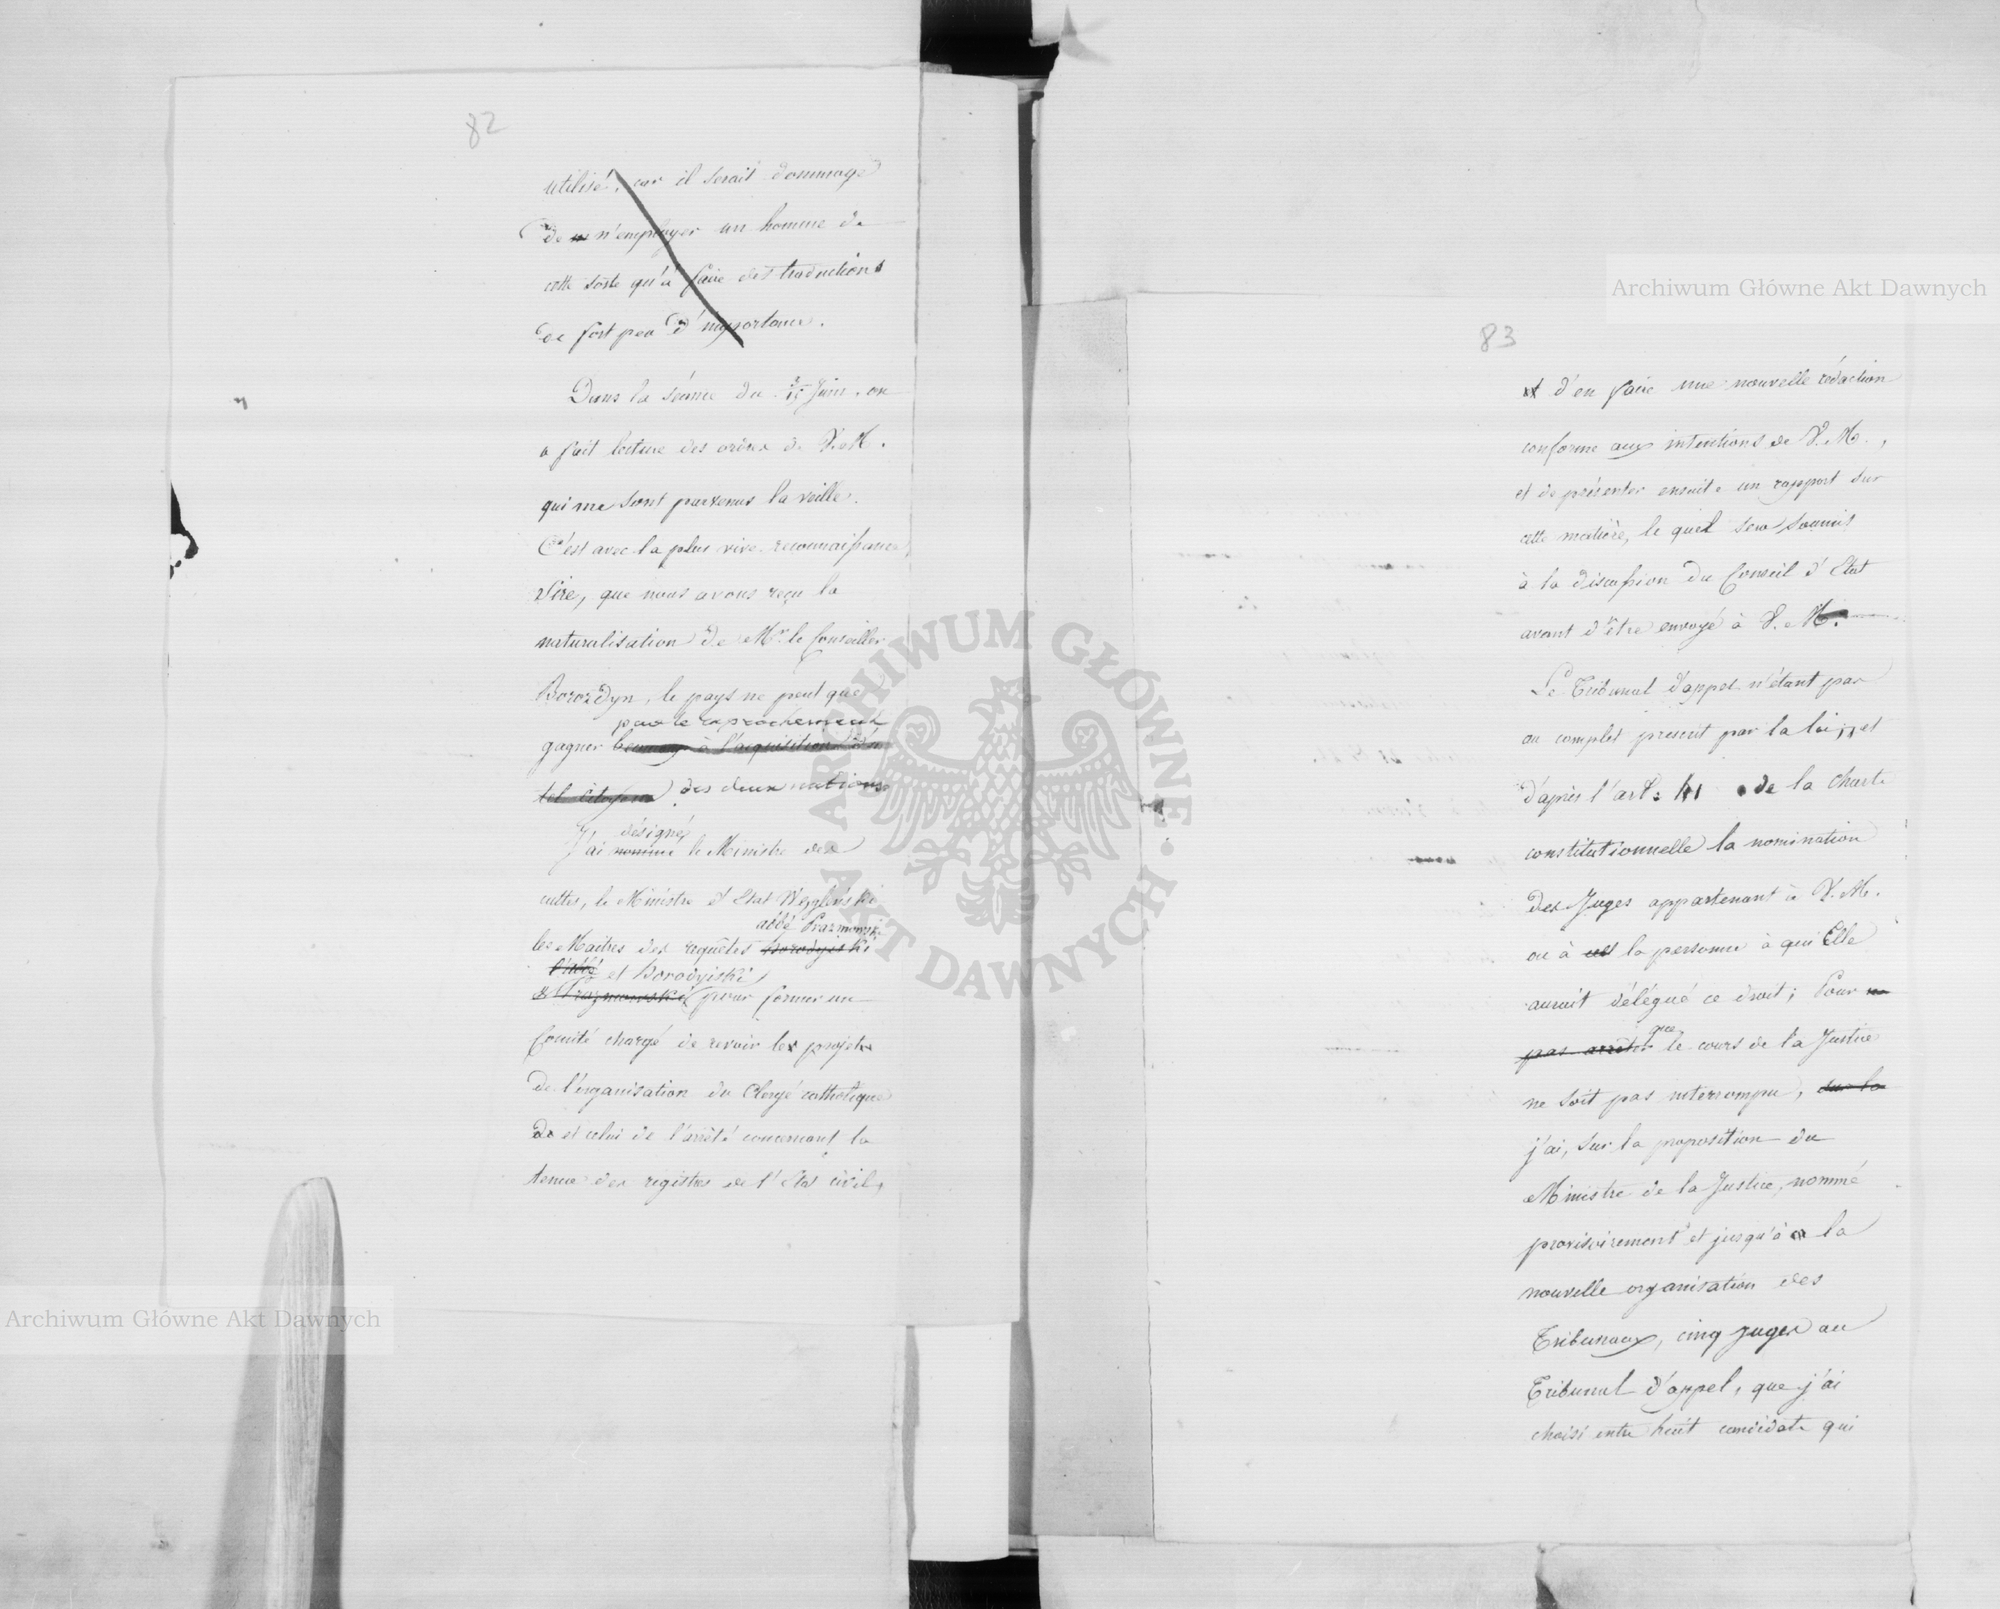 82
utilisé, car il serait dommage
de ne n'employer un homme de
cette sorte qu'à faire des traductions
de fort peu d'importance.
Dans la séance du 3/15 Juin, on
a fait lecture des ordres de V. M.
qui me sont parvenus la veille.
C'est avec la plus vive reconnaissance,
Sire, que nous avons reçu la
naturalisation de Mr. le Conseiller
Borozdyn, le pays ne peut que
pour le raprochement
gagner beaucoup à l'acquisition d'un
tel citoyen des deux nations
désigné
J'ai nommé le Ministre des
cultes, le Ministre d'Etat Węgleński
abbé Prazmowski
les Maitres des requêtes Horodyski
l'abbé et Horodyiski
& Prazmowski pour former un
Comité chargé de revoir les projets
de l'organisation du Clergé catholique
de et celui de l'arrêté concernant la
tenue des registres de l'Etat civil,
Archiwum Główne Akt Dawnych
ARCHIWUM GŁÓWNE AKT DAWNYCH
Archiwum Główne Akt Dawnych
83
et d'en faire une nouvelle rédaction
conforme aux intentions de V. M.,
et de présenter ensuite un rapport sur
cette matière, le quel sera soumis
à la discussion du Conseil d'Etat
avant d'être envoyé à V. M.
Le Tribunal d'appel n'étant pas
au complet prescrit par la loi, et
d'après l'art: 141 de la Charte
constitutionnelle la nomination
des Juges appartenant à V. M.
ou à la personne à qui Elle
aurait délégué ce droit; Pour ne
que
pas arrêter le cours de la Justice
ne soit pas interrompu, sur la
j'ai, sur la proposition du
Ministre de la Justice, nommé
provisoirement et jusqu'à la
nouvelle organisation des
Tribunaux, cinq juges au
Tribunal d'appel, que j'ai
choisi entre huit candidats qui